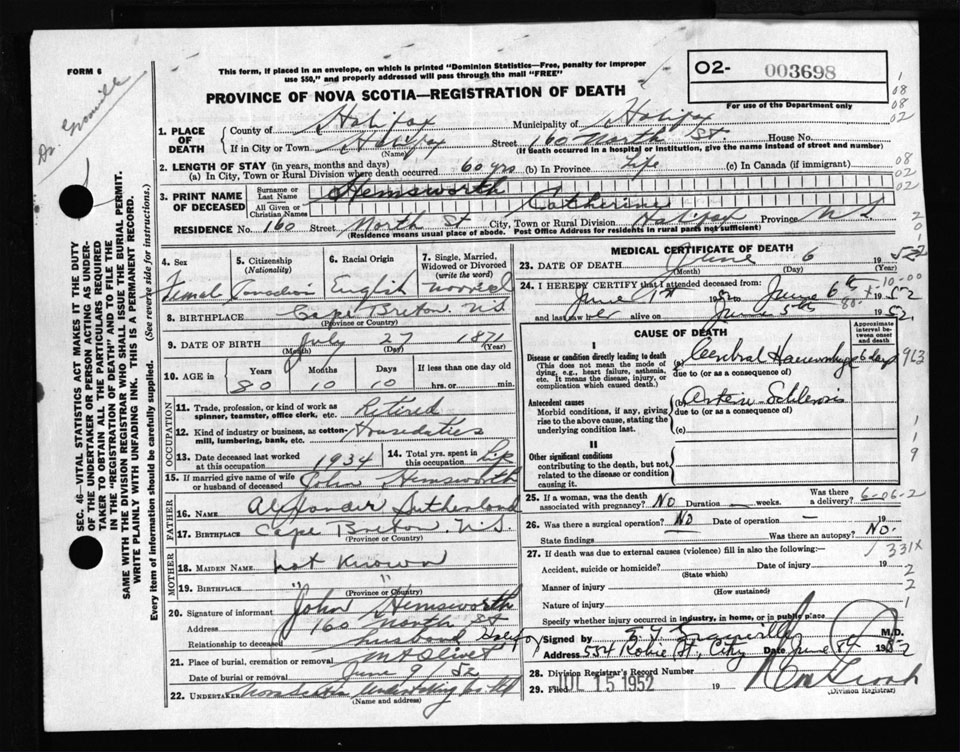 FORM 6
This form, if placed in an envelope, on which is printed "Dominion Statistics—Free, penalty for improper
use $50," and properly addressed will pass through the mail "FREE"
O2- 003698
PROVINCE OF NOVA SCOTIA—REGISTRATION OF DEATH
For use of the Department only
1. PLACE OF DEATH
County of Halifax Municipality of Halifax
If in City or Town Halifax Street 160 North St. House No.
(Name) (If death occurred in a hospital or institution, give the name instead of street and number)
2. LENGTH OF STAY (in years, months and days)
(a) In City, Town or Rural Division where death occurred 60 yrs (b) In Province Life (c) In Canada (if immigrant)
3. PRINT NAME OF DECEASED
Surname or Last Name Hemsworth
All Given or Christian Names Catherine
RESIDENCE No. 160 Street North St City, Town or Rural Division Halifax Province N.S.
(Residence means usual place of abode. Post Office Address for residents in rural parts not sufficient)
SEC. 46—VITAL STATISTICS ACT MAKES IT THE DUTY
OF THE UNDERTAKER OR PERSON ACTING AS UNDER-
TAKER TO OBTAIN ALL THE PARTICULARS REQUIRED
IN THE "REGISTRATION OF DEATH" AND TO FILE THE
SAME WITH THE DIVISION REGISTRAR WHO SHALL ISSUE THE BURIAL PERMIT.
WRITE PLAINLY WITH UNFADING INK. THIS IS A PERMANENT RECORD.
Every item of information should be carefully supplied. (See reverse side for instructions.)
4. Sex Female
5. Citizenship (Nationality) Canadian
6. Racial Origin English
7. Single, Married, Widowed or Divorced (write the word) Married
8. BIRTHPLACE Cape Breton N.S.
(Province or Country)
9. DATE OF BIRTH July 27 1871
(Month) (Day) (Year)
10. AGE in Years 80 Months 10 Days 10 If less than one day old hrs. or min.
OCCUPATION
11. Trade, profession, or kind of work as spinner, teamster, office clerk, etc. Retired
12. Kind of industry or business, as cotton-mill, lumbering, bank, etc. Housedaties
13. Date deceased last worked at this occupation 1934
14. Total yrs. spent in this occupation Life
15. If married give name of wife or husband of deceased John Hemsworth
FATHER
16. Name Alexander Sutherland
17. BIRTHPLACE Cape Breton N.S.
(Province or Country)
MOTHER
18. MAIDEN NAME not known
19. BIRTHPLACE " "
(Province or Country)
20. Signature of informant John Hemsworth
Address 160 North St
Relationship to deceased husband
21. Place of burial, cremation or removal Mt Olivet
Date of burial or removal June 9/52
22. UNDERTAKER Nova Scotia Undertaking Co. Ltd
(Name and address)
MEDICAL CERTIFICATE OF DEATH
23. DATE OF DEATH June 6 1952
(Month) (Day) (Year)
24. I HEREBY CERTIFY that I attended deceased from
June 1st 1952 to June 6th 1952
and last saw her alive on June 5th 1952
CAUSE OF DEATH
Approximate interval between onset and death
I
Disease or condition directly leading to death
(This does not mean the mode of dying, e.g., heart failure, asthenia, etc. It means the disease, injury, or complication which caused death.)
(a) Cerebral Haemorrhage 6 days
due to (or as a consequence of)
Antecedent causes
Morbid conditions, if any, giving rise to the above cause, stating the underlying condition last.
(b) Arterio Schlerosis
due to (or as a consequence of)
(c)
II
Other significant conditions
contributing to the death, but not related to the disease or condition causing it.
25. If a woman, was the death associated with pregnancy? No Duration — weeks. Was there a delivery?
6-06-2
26. Was there a surgical operation? No Date of operation — 19
State findings Was there an autopsy? No.
27. If death was due to external causes (violence) fill in also the following:—
331X
Accident, suicide or homicide? Date of injury 19
(State which)
Manner of injury
(How sustained)
Nature of injury
Specify whether injury occurred in industry, in home, or in public place
Signed by M.D.
Address 554 Robie St, City Date June 8th 1952
28. Division Registrar's Record Number
29. Filed JUL 15 1952 19
(Division Registrar)